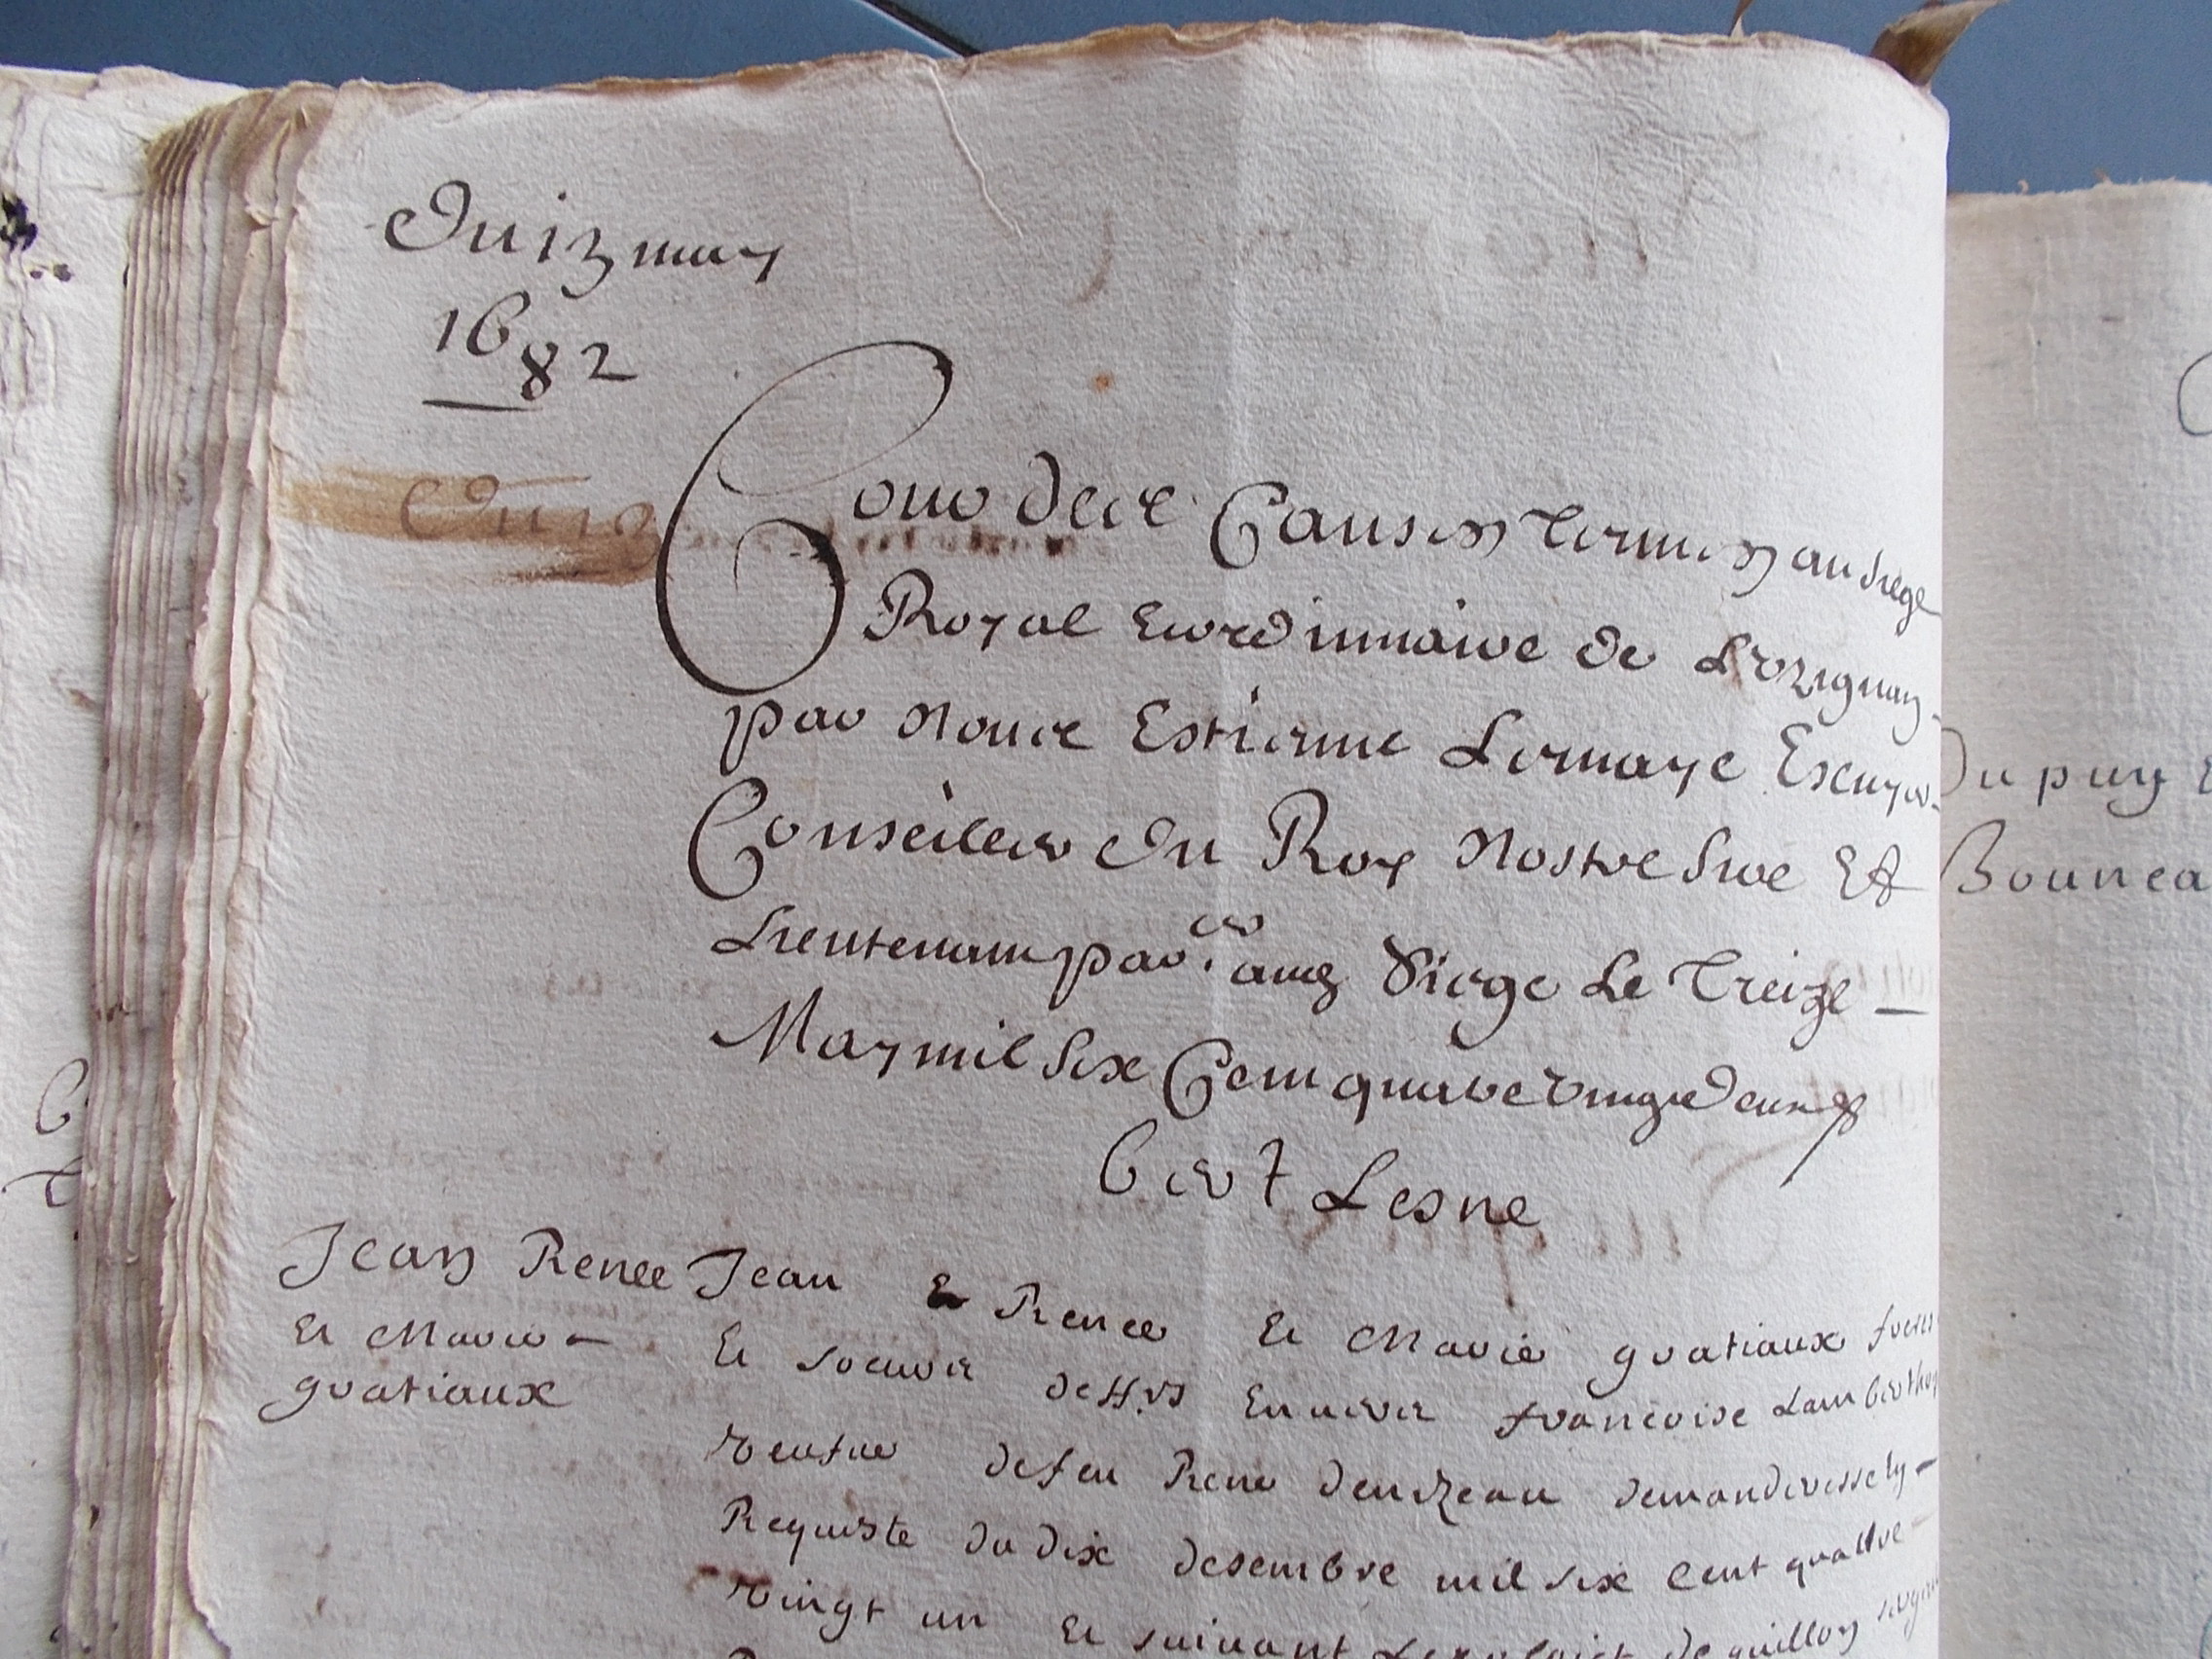 Du 13 may
1682
Cour decce Causes termes au siege
Royal Eordinnaire de Luzignan
par Nouce Estienne Lemaye Escuyer
Conseiller du Roy Nostre Sire Et
Lieutenant par.er audz Siege Le Treize
May mil six Cent quatre vingt deux
bert Lesne
Jean Renee
Et Marie
gratiaux
Jean Et Renee Et Marie gratiaux freres
Et soeurs Francoise
veufve de feu Rene deuzeau demanderesse
Requiste du dix desembre mil six Cent quattre
vingt un Et suivant de guillon
Du puy
Bounea